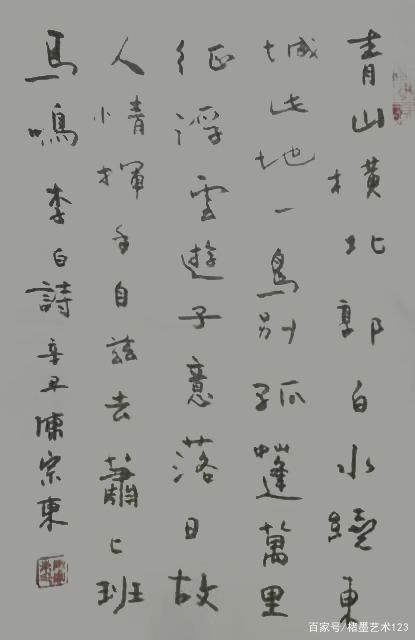 青山橫北郭白水繞東
城此地一為別孤蓬萬里
征浮雲遊子意落日故
人情揮手自茲去蕭〻班
馬鳴李白詩辛丑陳宗東
百家号/楷墨艺术123